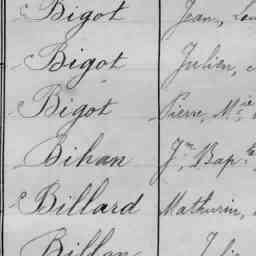 Bigot Jean,
Bigot Julien,
Bigot Pierre, Mie
Bihan Jn Bapte
Billard Mathurin,